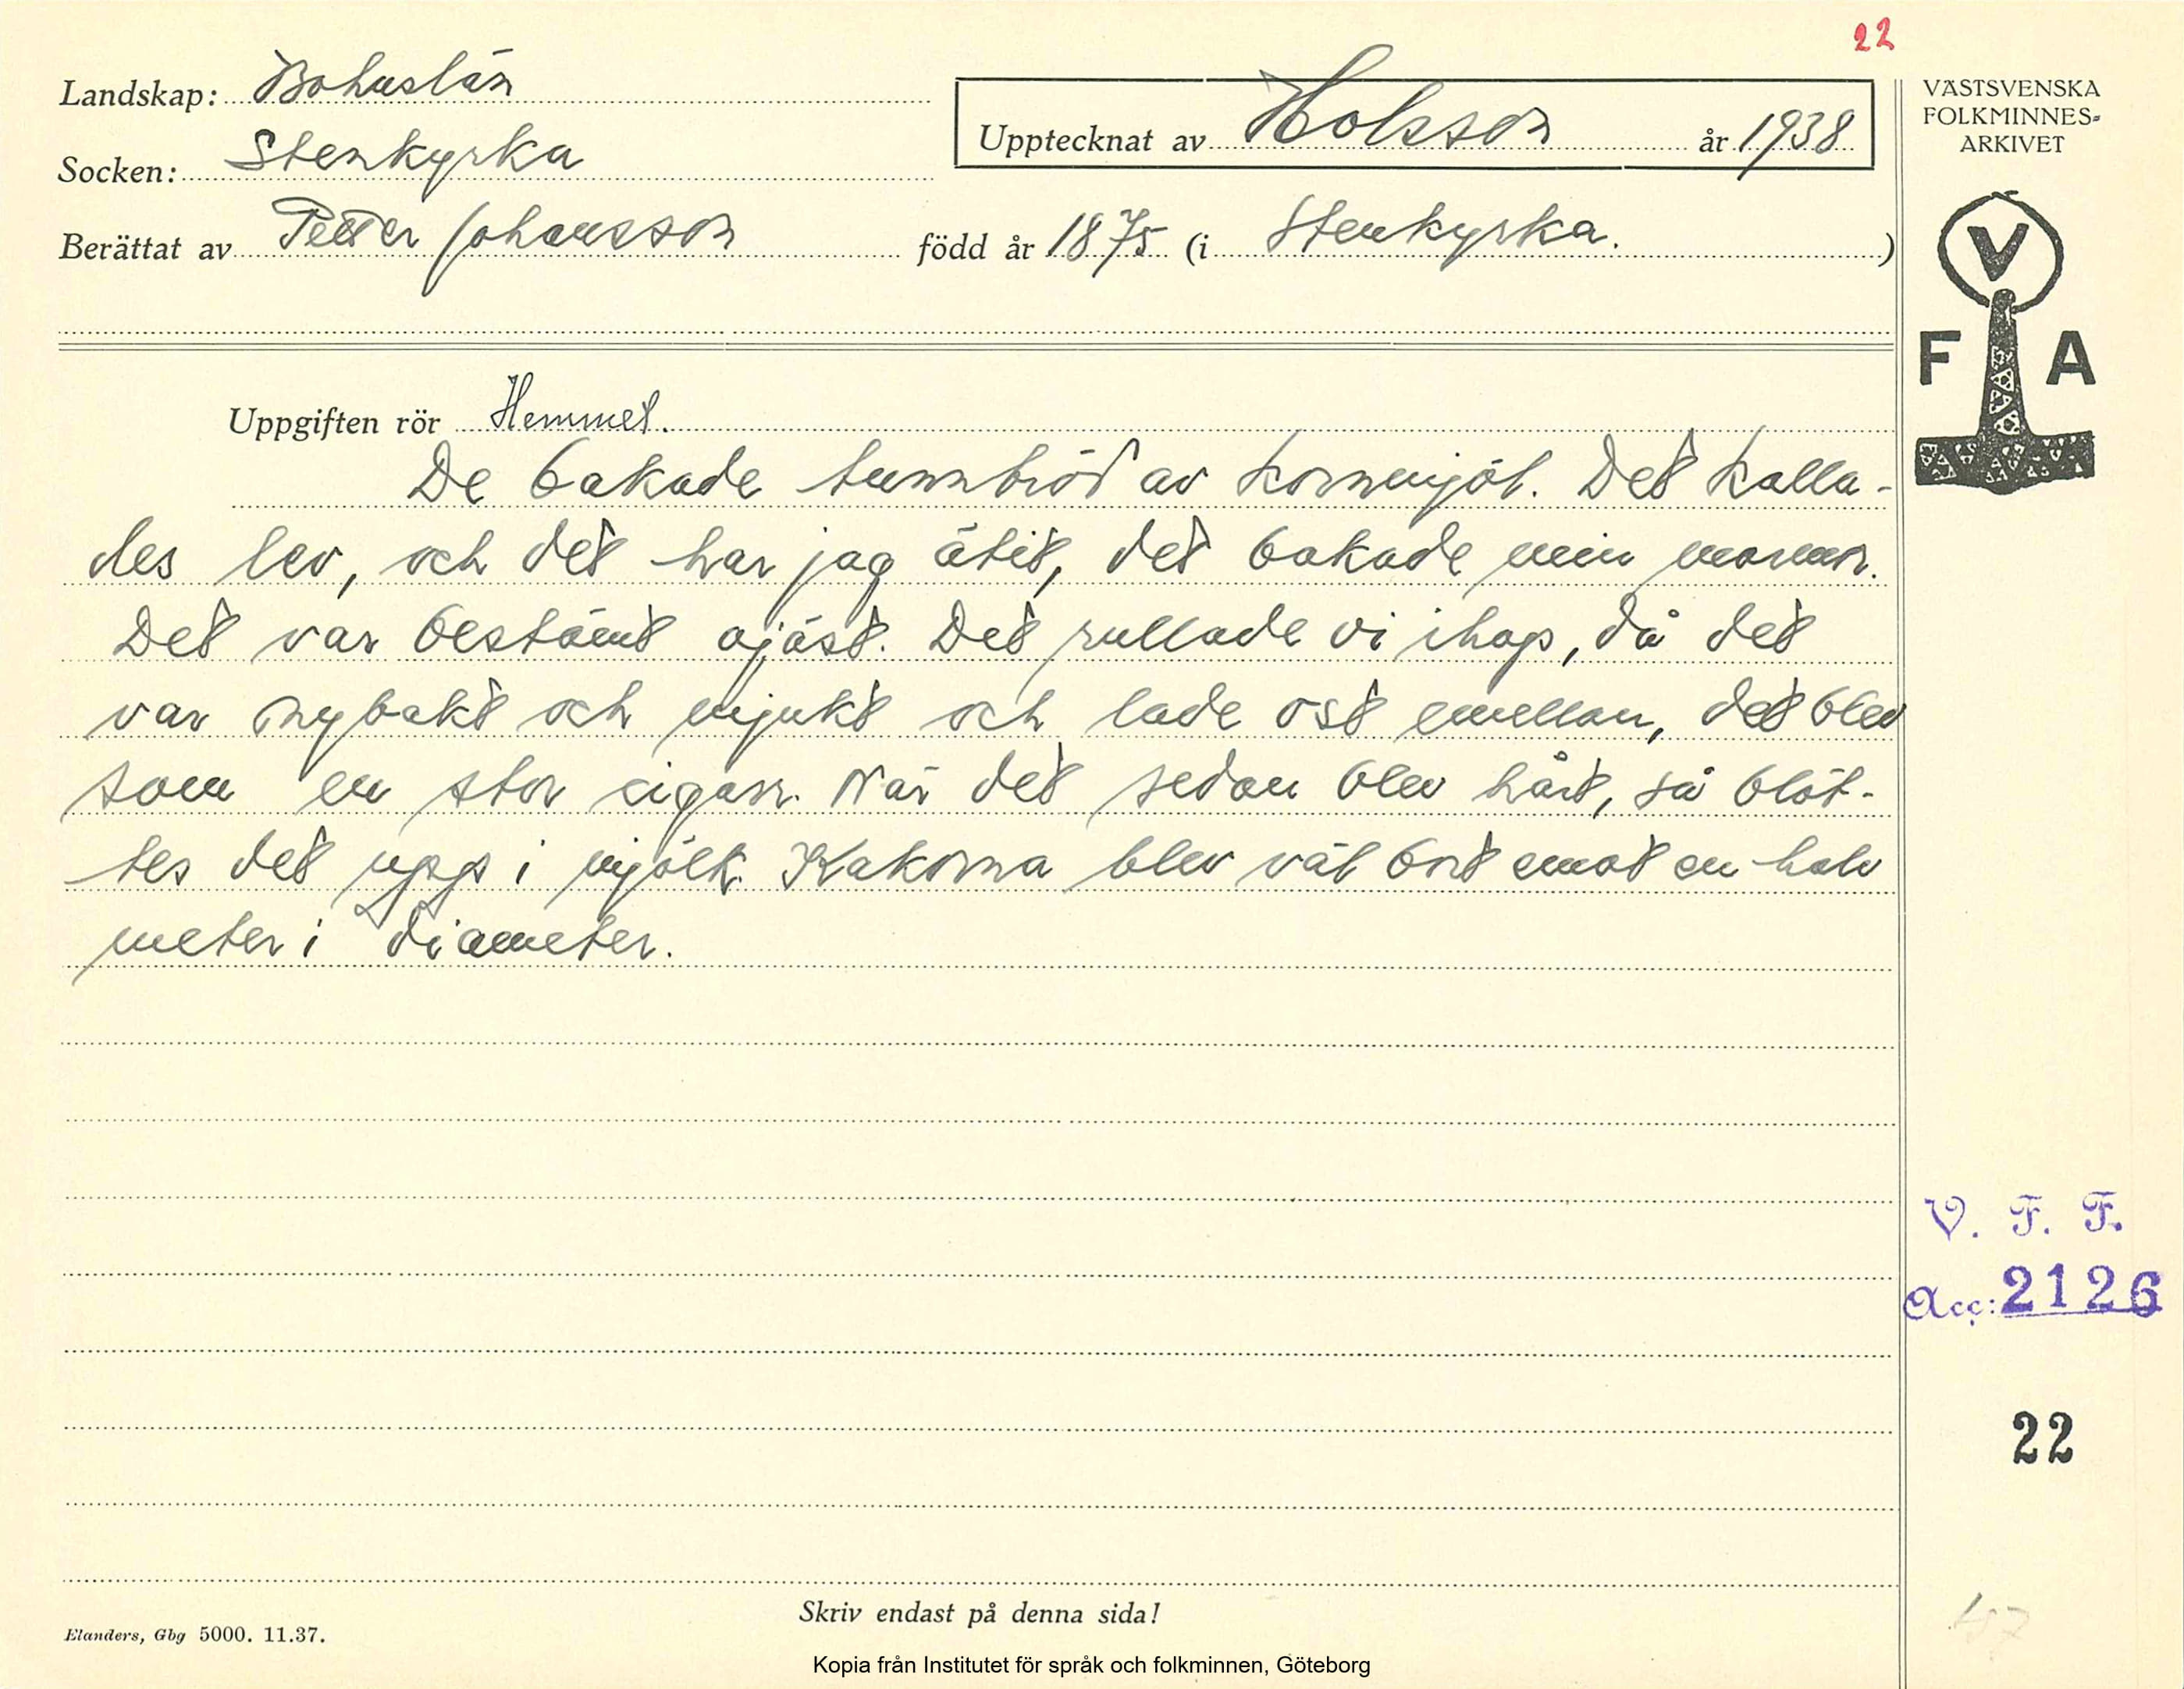 22
Landskap: Bohuslän
Upptecknat av Holsson år 1938
VÄSTSVENSKA
FOLKMINNES-
ARKIVET
Socken: Stenkyrka
Berättat av Petter Johansson född år 1875 (i Stenkyrka.)
V
F A
Uppgiften rör Hemmet.
De bakade tunnbröd av kornmjöl. Det kalla-
des lev, och det har jag ätit, det bakade min mormor.
Det var bestämt ojäst. Det rullade vi ihop, då det
var nybakt och mjukt och lade ost emellan, det blev
som en stor cigarr. När det sedan blev hårt, så blöt-
tes det upp i mjölk. Kakorna blev väl bort emot en halv
meter i diameter.
V. F. F.
Acc: 2126
22
Skriv endast på denna sida!
Elanders, Gbg 5000. 11.37.
Kopia från Institutet för språk och folkminnen, Göteborg